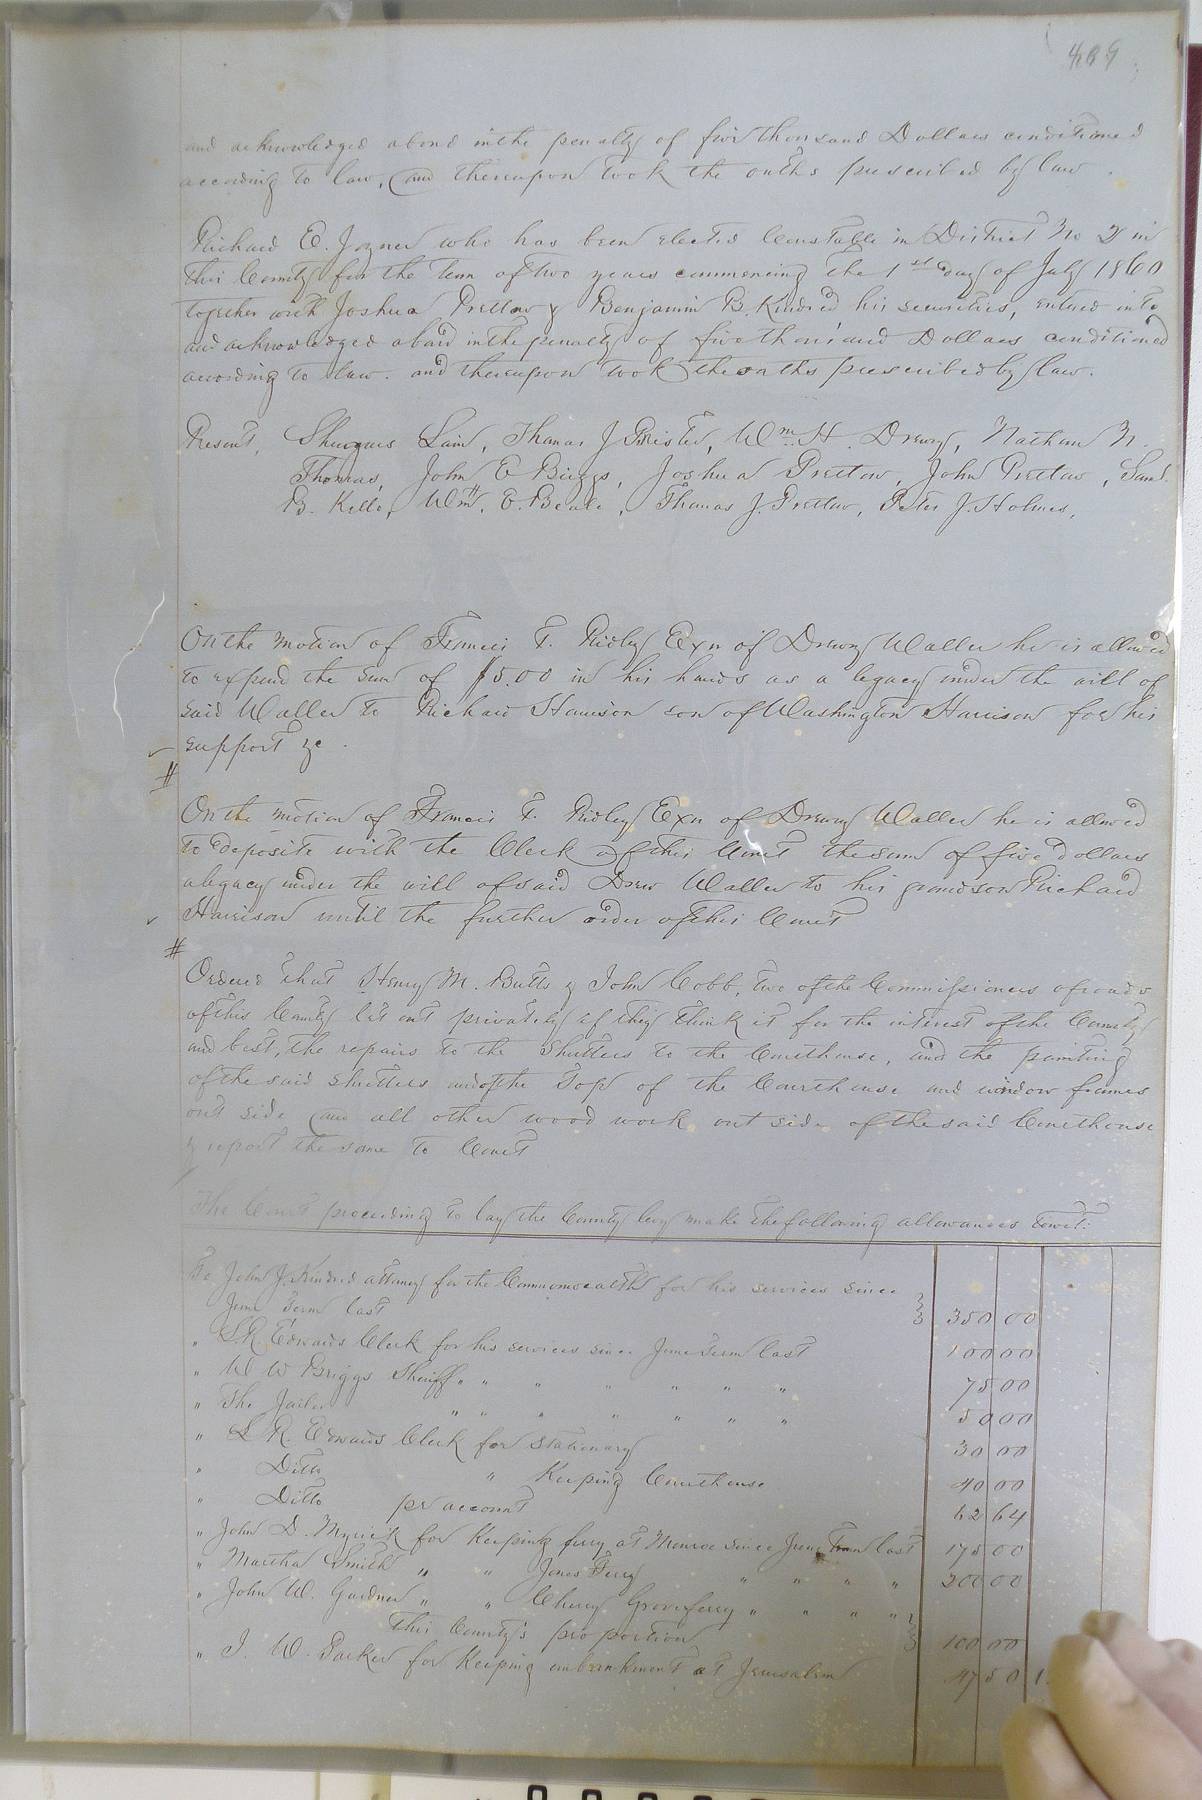 469
and acknowledged abond inthe penalty of five thousand Dollars conditioned
according to law, and thereupon took the oaths prescribed by law.
Richard E. Joyner who has been elected Constable in District No 2 in
this County for the term of two years commencing the 1st day of July 1860
together with Joshua Pretlow & Benjamin B. Kindred his securities, entered into
and acknowledged abond inthe penalty of five thousand Dollars conditioned
according to law. and thereupon took the oaths prescribed by law.
Present, Lain, Thomas J. Prister, Wm H. Drewry, Nathan N.
Thomas, John E Briggs, Joshua Pretlow, John Pretlow, Saml.
B. Kello, Wm. E. Beale, Thomas J. Pretlow, Peter J. Holmes,
On the motion of Francis F. Ridley Exr of Drewry Waller he is allowed
to expend the sum of $5.00 in his hands as a legacy under the will of
said Waller to Richard Harrison son of Washington Harrison for his
support &c.
On the motion of Francis F. Ridley Exr of Drewry Waller he is allowed
to deposite with the Clerk of this Court the sum of five dollars
a legacy under the will of said Drew Waller to his grandson Richard
Harrison until the further order of this Court
#
Ordered that Henry M. Butts & John Cobb, two of the Commissioners of roads
of this County let out privately if they think it for the interest of the County
and best, the repairs to the Shutters to the Courthouse, and the painting
of the said shutters and of the Top of the Courthouse and window frames
out side and all other wood work out side of the said Courthouse
& report the same to Court
The Court proceeding to lay the County levy make the following allowances towit:
To John J. Kindred attorney for the Commonwealth for his services since
June Term last 350 00
" L.R. Edwards Clerk for his services since June Term last 100 00
" W W Briggs Sheriff " " " " " " " 75 00
" The Jailor " " " " " " " 50 00
" L R. Edwards Clerk for Stationary 30 00
" Ditto " Keeping Courthouse 40 00
" Ditto pr account 62 64
" John D. Myrick for Keeping ferry at Monroe since June Term last 175 00
" Martha Smith " " Jones Ferry " " " " 200 00
" John W. Gardner " " Cherry Grove ferry " " " "
this County's proportion 100 00
" J. W. Parker for Keeping embankment at Jerusalem 47 50